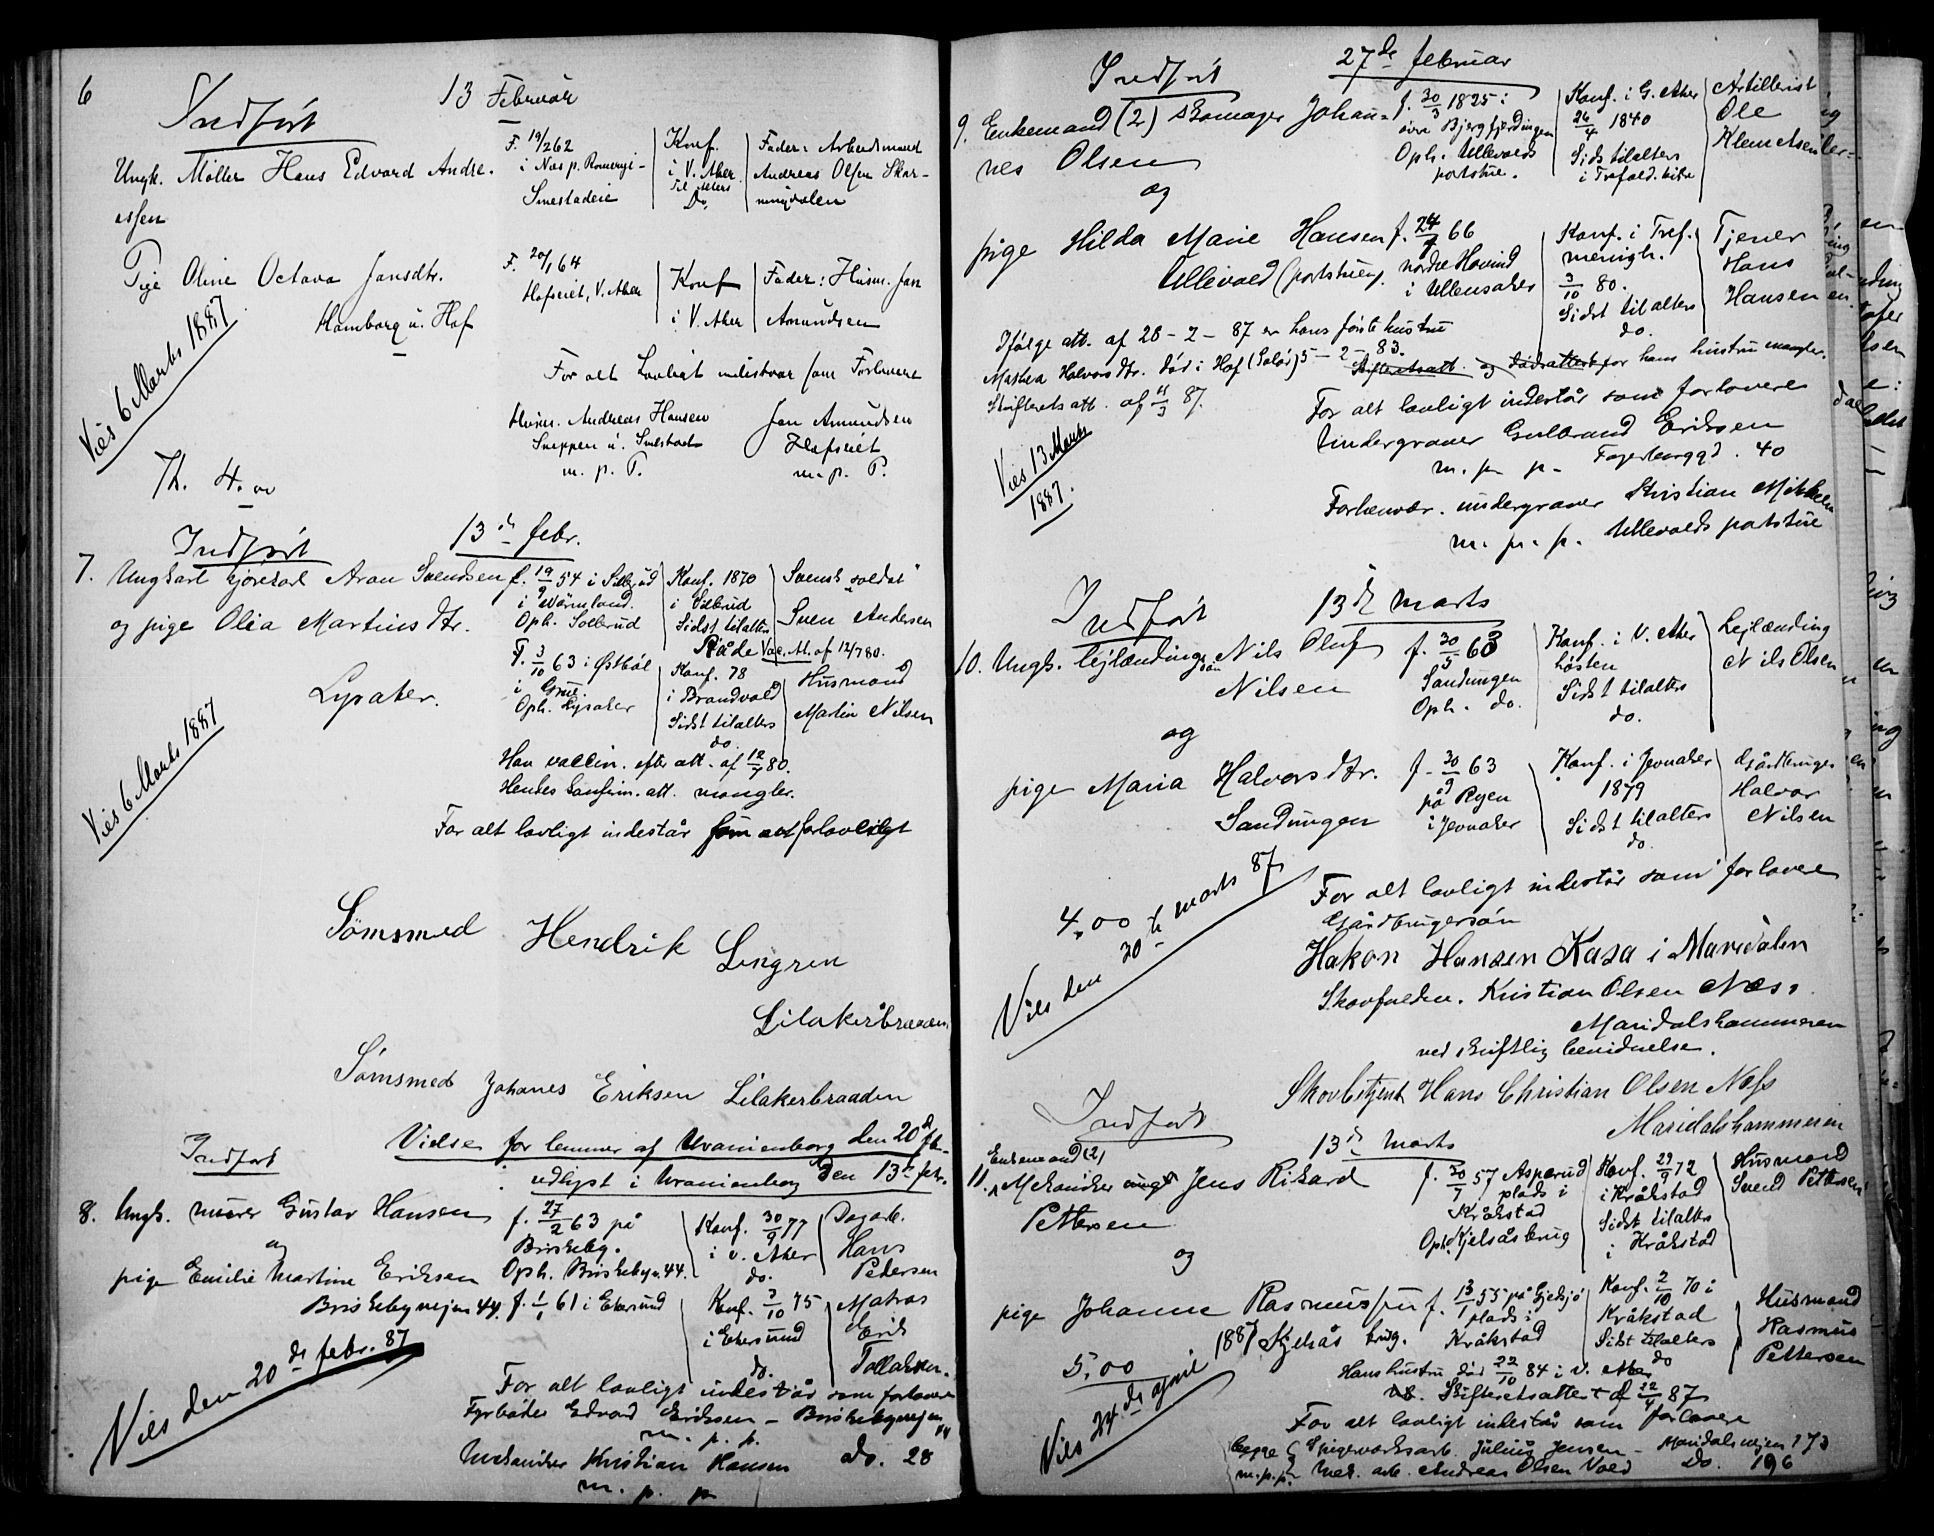 6
Indført
13 Februar
Ungk. Møller Hans Edvard Andre-
assen
F. 19/2 62
i Næs p. Romerige
Smestadeie
Konf.
i V. Aker
Til Alters
Do.
Fader: Arbeidsmand
Andreas Olsen Skar-
ningdalen
Pige Oline Octava Jansdtr.
Homborg u. Hof
F. 20/1 64
Hofseiet, V. Aker
Konf
i V. Aker
Fader: Husm. Jan
Amundsen
Viet 6 Marts 1887
For alt Lovligt indestaar som Forlovere
Husm. Andreas Hansen
Sneppen u. Smestad
m. p. P.
Jan Amundsen
Hofseiet
m. p. P.
Th. 4.
Indført
13de febr.
7. Ungkarl kjørekarl Aron Svendsen
og pige Olia Martinsdtr.
Lysaker.
f. 19/9 54 i Silbodal
i Värmland.
Oph. Sollerud
Konf. 1870
i Silbud
Sidst tilalters
Råde
Svensk "soldat"
Sven Andersen
Vac. At. af 12/7 80.
F. 3/10 63 i Østbøl
i Grue.
Oph. Lysaker
Konf. 78
i Brandvold
Sidst tilalters
do.
Husmand
Martin Nilsen
Viet 6 Marts 1887
Han vaccin. efter att. af 12/7 80.
Hendes Konfirm. att. mangler.
For alt lovligt indestår som forlovere
Sømsmed Hendrik Lingren
Lilakerbraaden
Sømsmed Johanes Eriksen Lilakerbraaden
Indført
Vielse for lemmer af Uranienborg den 20de feb.
udlyst i Uranienborg den 13de febr.
8. Ungk. murer Gustav Hansen
og
pige Emilie Martine Eriksen
Briskebyvejen 44.
f. 27/2 63 på
Briskeby.
Oph. Briskebyv. 44.
Konf. 30/9 77
i V. Aker
do.
Dagarb.
Hans
Pedersen
f. 1/1 61 i Ekersund
Konf. 3/10 75
i Ekersund
do.
Matros
Erik
Tollaksen.
Viet den 20de febr. 87
For alt lovligt indestår som forlovere
Fyrbøder Edvard Eriksen - Briskebyvejen 44
m. p. p.
Mekaniker Kristian Hansen do. 28
m. p. p
Indført
27de februar
9. Enkemand (2) skomager Johan-
nes Olsen
og
f. 30/3 1825 i
øvre Bjergfjerdingen
Oph. Ullevolds
portstue.
Konf. i G. Aker
26/4 1840
Sidst tilalters
i Trefold. kirke
Artillerist
Ole
Klemetsen
pige Hilda Marie Hansen
Ullevold (portstuen)
f. 24/7 66
nordre Hovind
i Ullensaker
Konf. i Tref.
menigh.
3/10 80.
Sidst tilalters
do.
Tjener
Hans
Hansen
Ifølge att. af 28-2-87 er hans første hustru
Mathea Halvorsdtr. død i Hof (Solør) 5-2-83.
Skifteretsatt. og dødsattest for hans hustru mangler.
Skifteretsatt. af 11/3 87.
Viet 13 Marts
1887.
For alt lovligt indestår som forlovere
Undergraver Gulbrand Eriksen
m. p. p. Fagerborggd. 40
Forhenvær. undergraver Kristian Mikkelsen
m. p. p. Ullevolds portstue
Indført
13de marts
10. Ungk. lejlændingsøn Nils Oluf
Nilsen
og
f. 30/5 63
Sandungen
Oph. do.
Konf. i V. Aker
høsten
Sidst tilalters
do.
Lejlænding
Nils Olsen
pige Maria Halvorsdtr.
Sandungen
f. 30/9 63
på Ryen
i Jevnaker
Konf. i Jevnaker
1879
Sidst tilalters
do.
Gårdbruger
Halvor
Nilsen
4,00
Viet den 30te marts 87
For alt lovligt indestår som forlovere
Gårdbrugersøn
Hakon Hansen Kasa i Maridalen
Skovfuldm. Kristian Olsen Næss.
Maridalshammeren
ved skriftlig bevidnelse.
Skovbetjent Hans Christian Olsen Næss
Maridalshammeren
Indført
13de marts
Enkemand (2)
11. Mekaniker ungk Jens Rikard
Pettersen
og
f. 30/7 57 Asperud
plads i
Kråkstad
Oph. Kjelsåsbrug
Konf. 29/9 72
i Kråkstad
Sidst tilalters
i Kråkstad
Husmand
Svend Pettersen
pige Johanne Rasmussen
Kjelsås brug.
f. 13/1 55 på Gjedsjø
plads i
Kråkstad
Konf. 2/10 70 i
Kråkstad
Sidst tilalters
do
Husmand
Rasmus
Pettersen
5,00
Viet 24de april 1887
Hans hustru død 22/10 84 i V. Aker
Skifteretsattest af 22/4 87
For alt lovligt indestår som forlovere
begge
m.p.p.
Spigerværksarb. Julius Jensen - Maridalsvejen 173
Mek. arb. Andreas Olsen Vold Do. 196